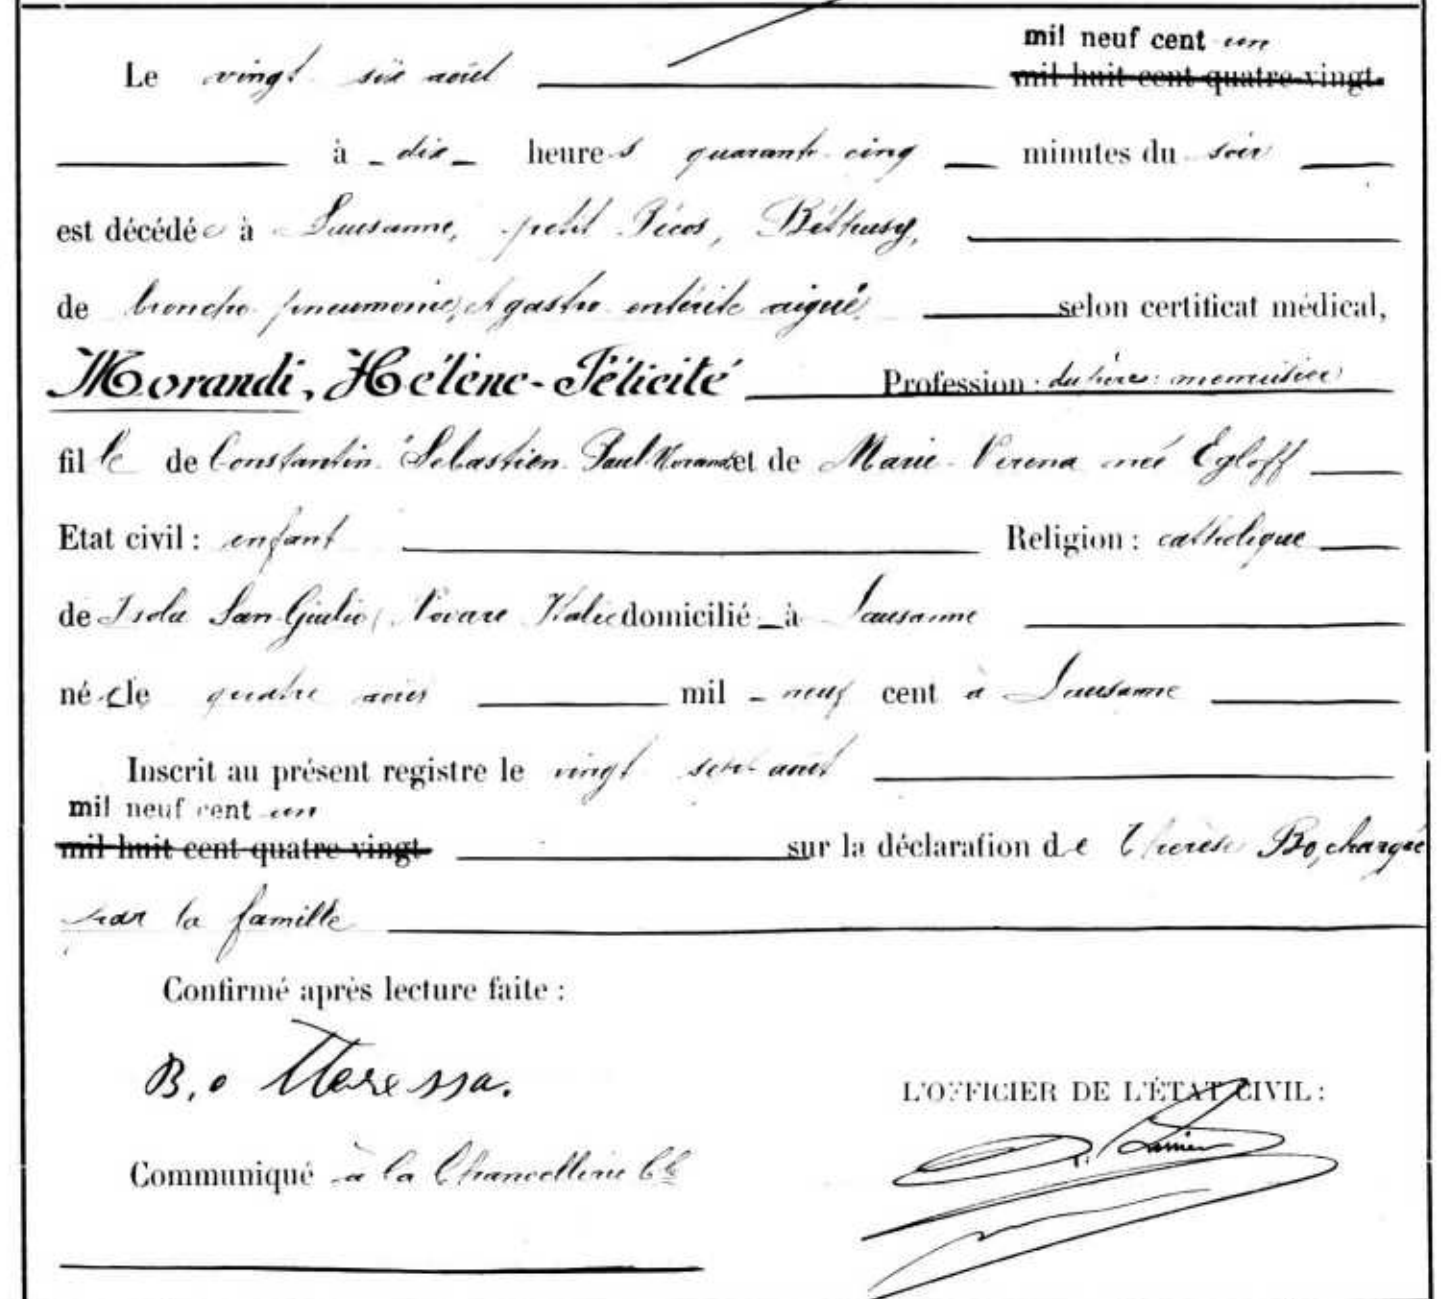 mil neuf cent un
Le vingt six août mil huit cent quatre-vingt
à dix heures quarante cinq minutes du soir
est décédée à Lausanne, petit Béthusy,
de broncho pneumonie, et gastro entérite aiguë, selon certificat médical,
Morandi, Hélène-Félicité Profession : du père : menuisier
fille de Constantin Sébastien Paul Morandi et de Marie Verena née Egloff
Etat civil : enfant Religion : catholique
de Isola San Giulio, Novare Italie domicilié à Lausanne
née le quatre mil neuf cent à Lausanne
Inscrit au présent registre le vingt sept août
mil neuf cent un
mil huit cent quatre-vingt sur la déclaration de Thérèse Bo, chargée
par la famille
Confirmé après lecture faite :
Bo Teressa.
L'OFFICIER DE L'ÉTAT CIVIL :
Communiqué à la Chancellerie